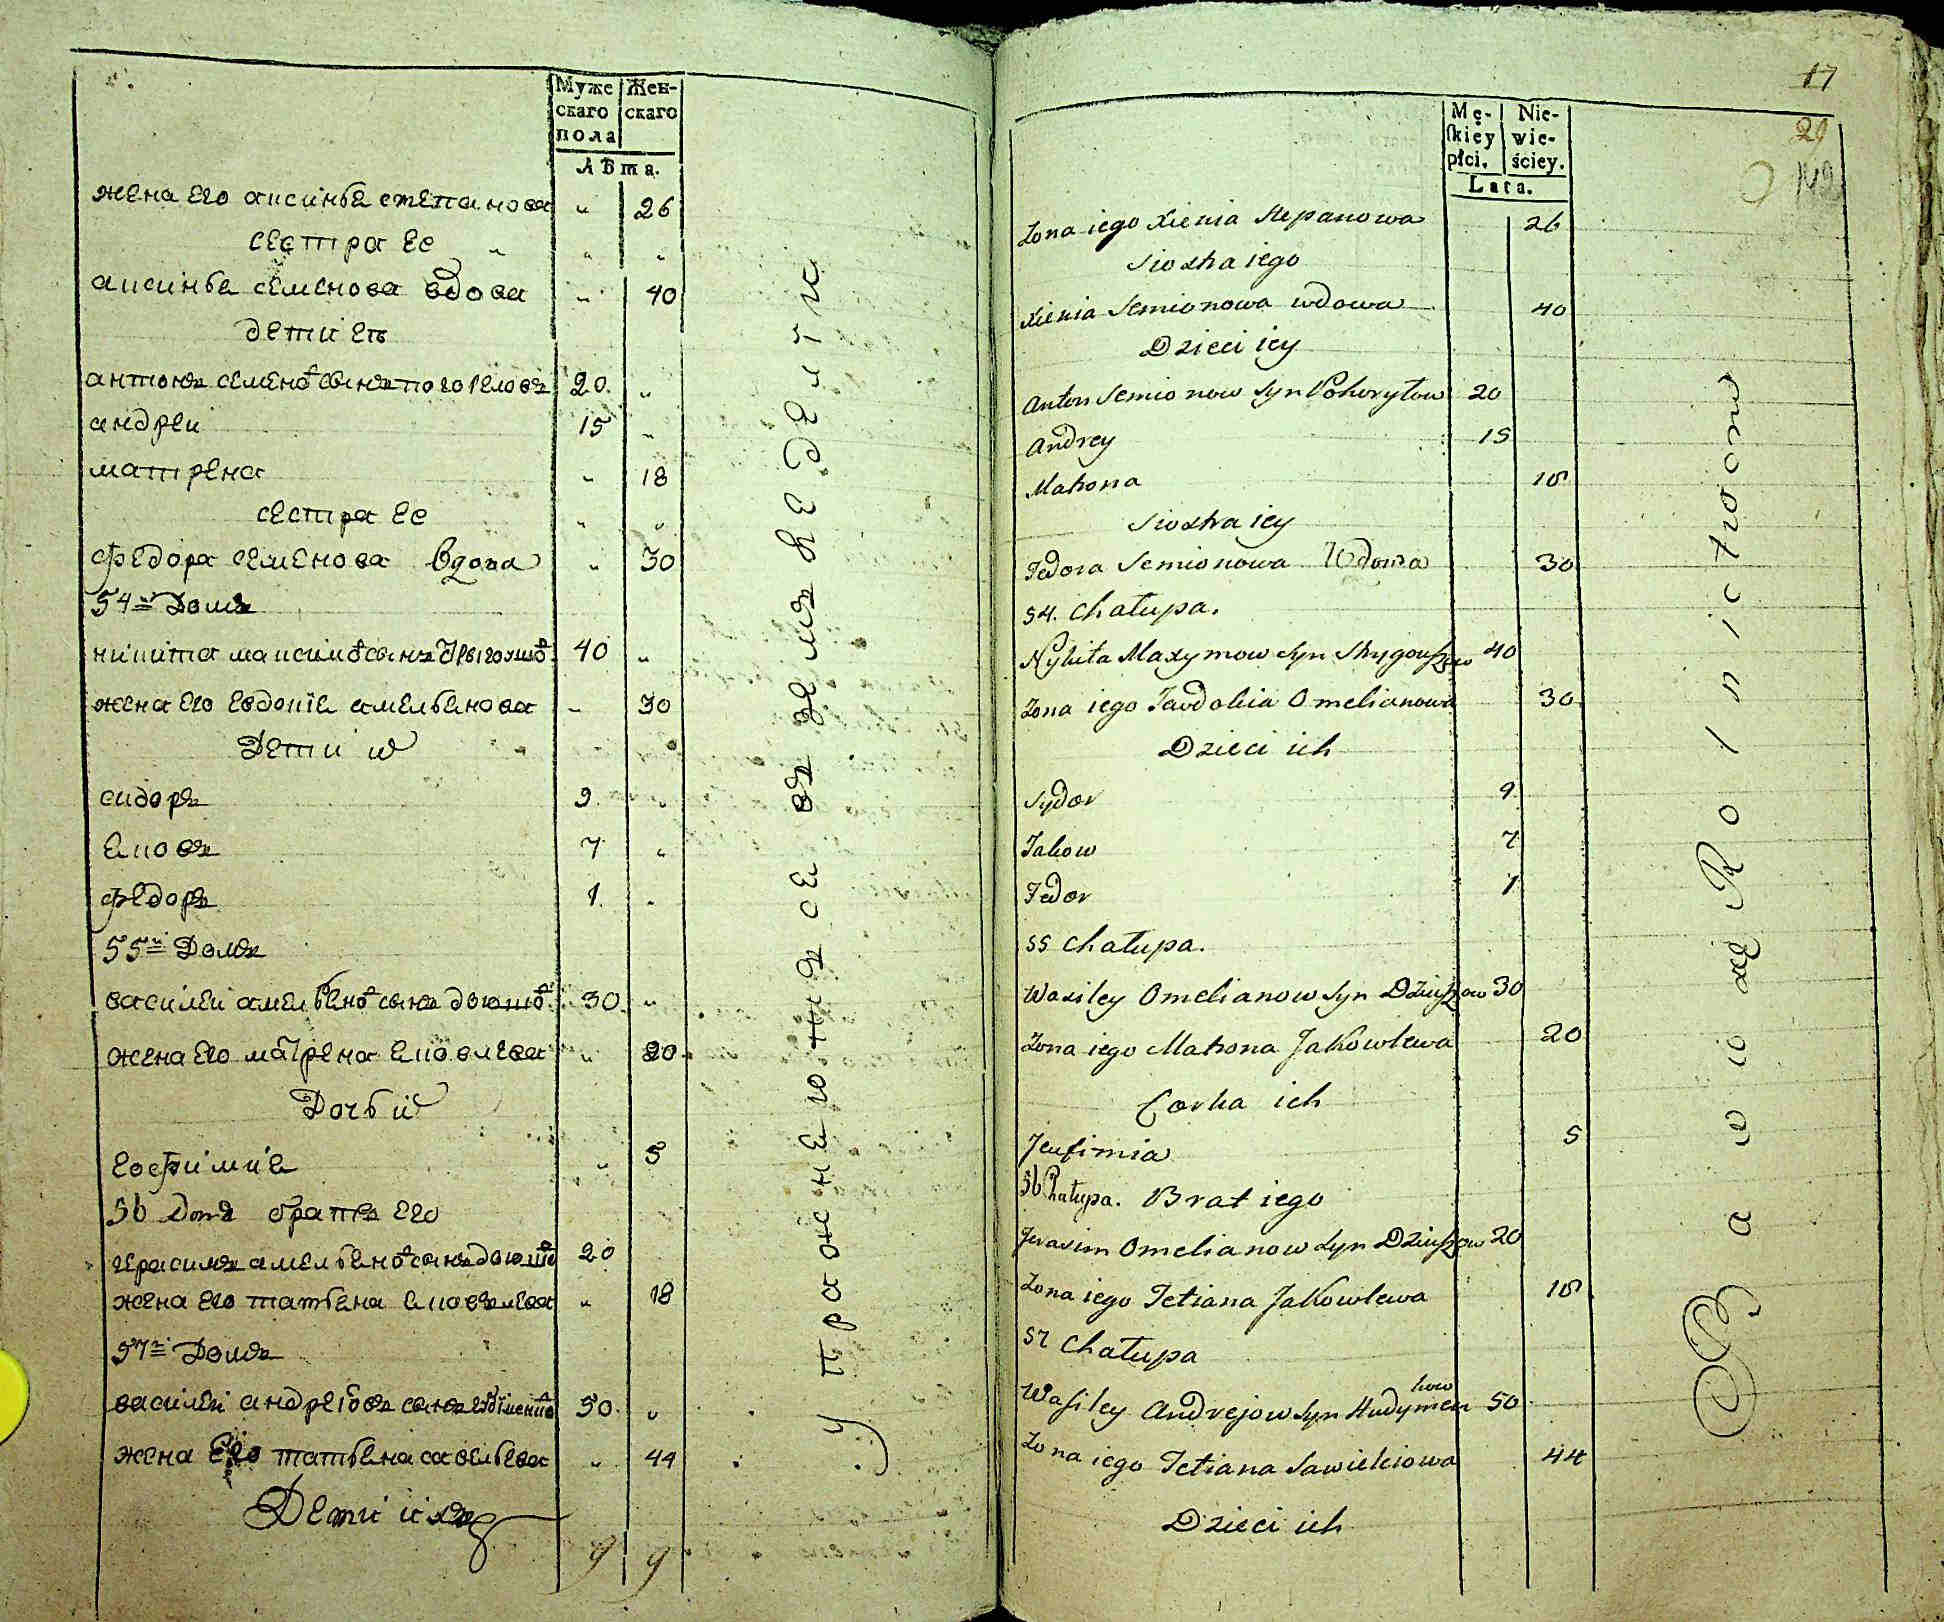 Муже Жен-
скаго скаго
пола
Лѣта.
жена его аксинья степанова " 26
сестра ее " " "
аксинья семенова вдова " 40
дети еъ
антонъ семено в сынъ погореловъ 20. "
андреи 15 "
матрена " 18
сестра ее " "
федора семенова вдова " 30
54й Домъ
никита максимов сынъ 40 "
жена его евдокия амельянова " 30
Дети их
сидоръ 9. "
яковъ 7 "
федоръ 1. "
55й Домъ
василеи амельянов сынъ дзюшов 30. "
жена его матрена яковлева " 20.
Дочь их
евфимия " 5
56 Домъ братъ его
герасимъ амельянов сынъ дзюшов 20
жена его татьяна яковлева " 18
57й Домъ
василеи андреевъ сынъ 50. "
жена Его татьяна савельева " 44
Дети ихъ
9 9
Упражнѣются все въ земледелии
17
29
Mę- Nie-
skiey wie-
płci. ściey.
Lata.
Zona iego Xienia Stepanowa 26
Siostra iego
Xienia Semionowa wdowa 40
Dzieci iey
Anton Semionow Syn Pohoryłow 20
Andrey 15
Matrona 18
Siostra iey
Fedora Semionowa Wdowa 30
54. Chałupa.
Nykita Maxymow Syn Strygouszow 40
Zona iego Jawdokia Omelianowa 30
Dzieci ich
Sydor 9
Jakow 7
Fedor 1
55 Chałupa.
Wasiley Omelianow Syn Dziuszow 30
Zona iego Matrona Jakowlewa 20
Corka ich
Jeufimia 5
56 Chałupa. Brat iego
Jerasim Omelianow Syn Dziuszow 20
Zona iego Tetiana Jakowlewa 18
57 Chałupa
Wasiley Andrejow Syn Hudymenkow 50
Zona iego Tetiana Sawieliowa 44
Dzieci ich
Bawią się Rolnictwom